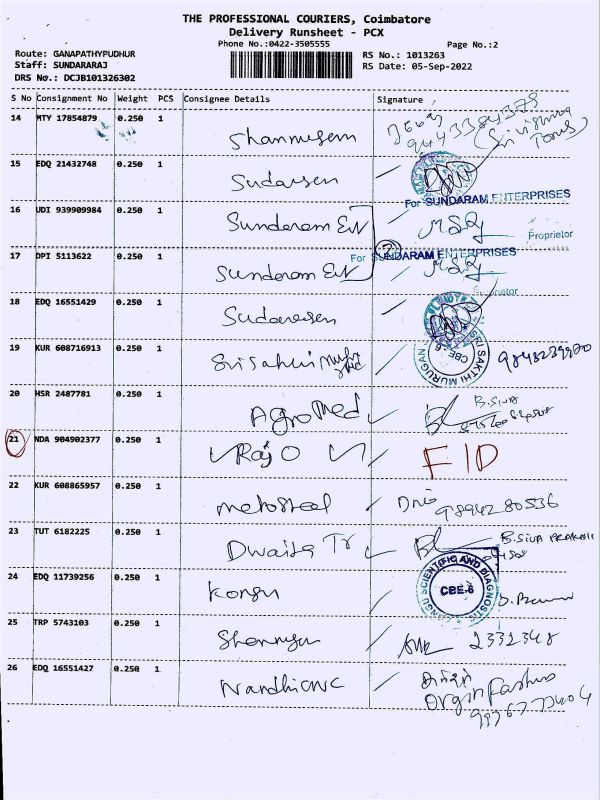 THE PROFESSIONAL COURIERS, Coimbatore
Delivery Runsheet - PCX
Phone No.:0422-3505555
Page No.:2
Route: GANAPATHYPUDHUR
RS No.: 1013263
Staff: SUNDARARAJ
RS Date: 05-Sep-2022
DRS No.: DCJB101326302
S No Consignment No Weight PCS Consignee Details Signature
14 MTY 17854879 0.250 1
15 EDQ 21432748 0.250 1
For SUNDARAM ENTERPRISES
16 UDI 939909984 0.250 1 Sundaram
Proprietor
For SUNDARAM ENTERPRISES
17 DPI 5113622 0.250 1 Sundaram
18 EDQ 16551429 0.250 1
19 KUR 608716913 0.250 1
SRI SAKTHI MURUGAN
CBE-6
20 HSR 2487781 0.250 1 Agromed B.Siva
21 NDA 904902377 0.250 1 Raj FID
22 KUR 608865957 0.250 1 metosteel 9894280536
23 TUT 6182225 0.250 1 Dwaita Tr
24 EDQ 11739256 0.250 1 Kongu
KONGU SCIENTIFIC AND DIAGNOSTIC
CBE-6
25 TRP 5743103 0.250 1 2332348
26 EDQ 16551427 0.250 1